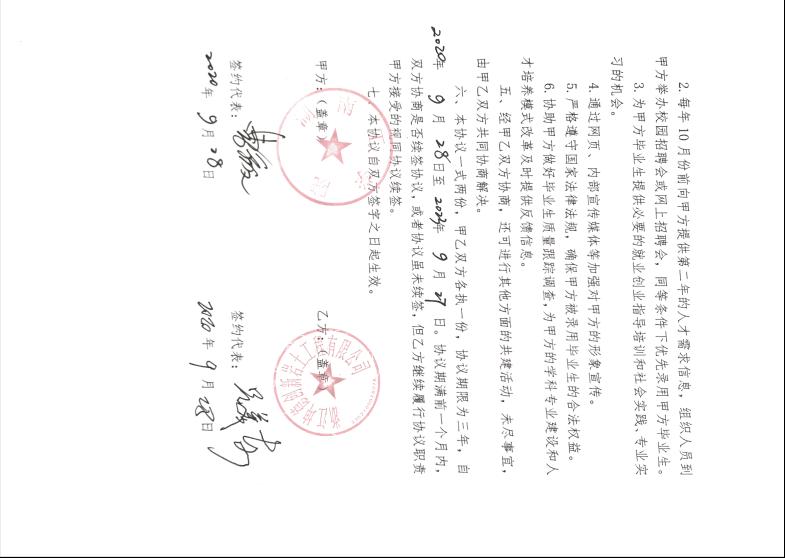 2. 每年 10 月份前向甲方提供第二年的人才需求信息，组织人员到
甲方举办校园招聘会或网上招聘会，同等条件下优先录用甲方毕业生。
3. 为甲方毕业生提供必要的就业创业指导培训和社会实践、专业实
习的机会。
4. 通过网页、内部宣传媒体等加强对甲方的形象宣传。
5. 严格遵守国家法律法规，确保甲方被录用毕业生的合法权益。
6. 协助甲方做好毕业生质量跟踪调查，为甲方的学科专业建设和人
才培养模式改革及时提供反馈信息。
五、经甲乙双方协商，还可进行其他方面的共建活动，未尽事宜，
由甲乙双方共同协商解决。
六、本协议一式两份，甲乙双方各执一份，协议期限为三年，自
2020年 9 月 28日至 2023年 9 月 27 日。协议期满前一个月内，
双方协商是否续签协议，或者协议虽未续签，但乙方继续履行协议职责
甲方接受的视同协议续签。
七、本协议自双方签字之日起生效。
甲方：（盖章） 乙方：（盖章
岩土工程有限公司
签约代表： 签约代表：
2020 年 9 月 28 日 2020 年 9 月 28 日